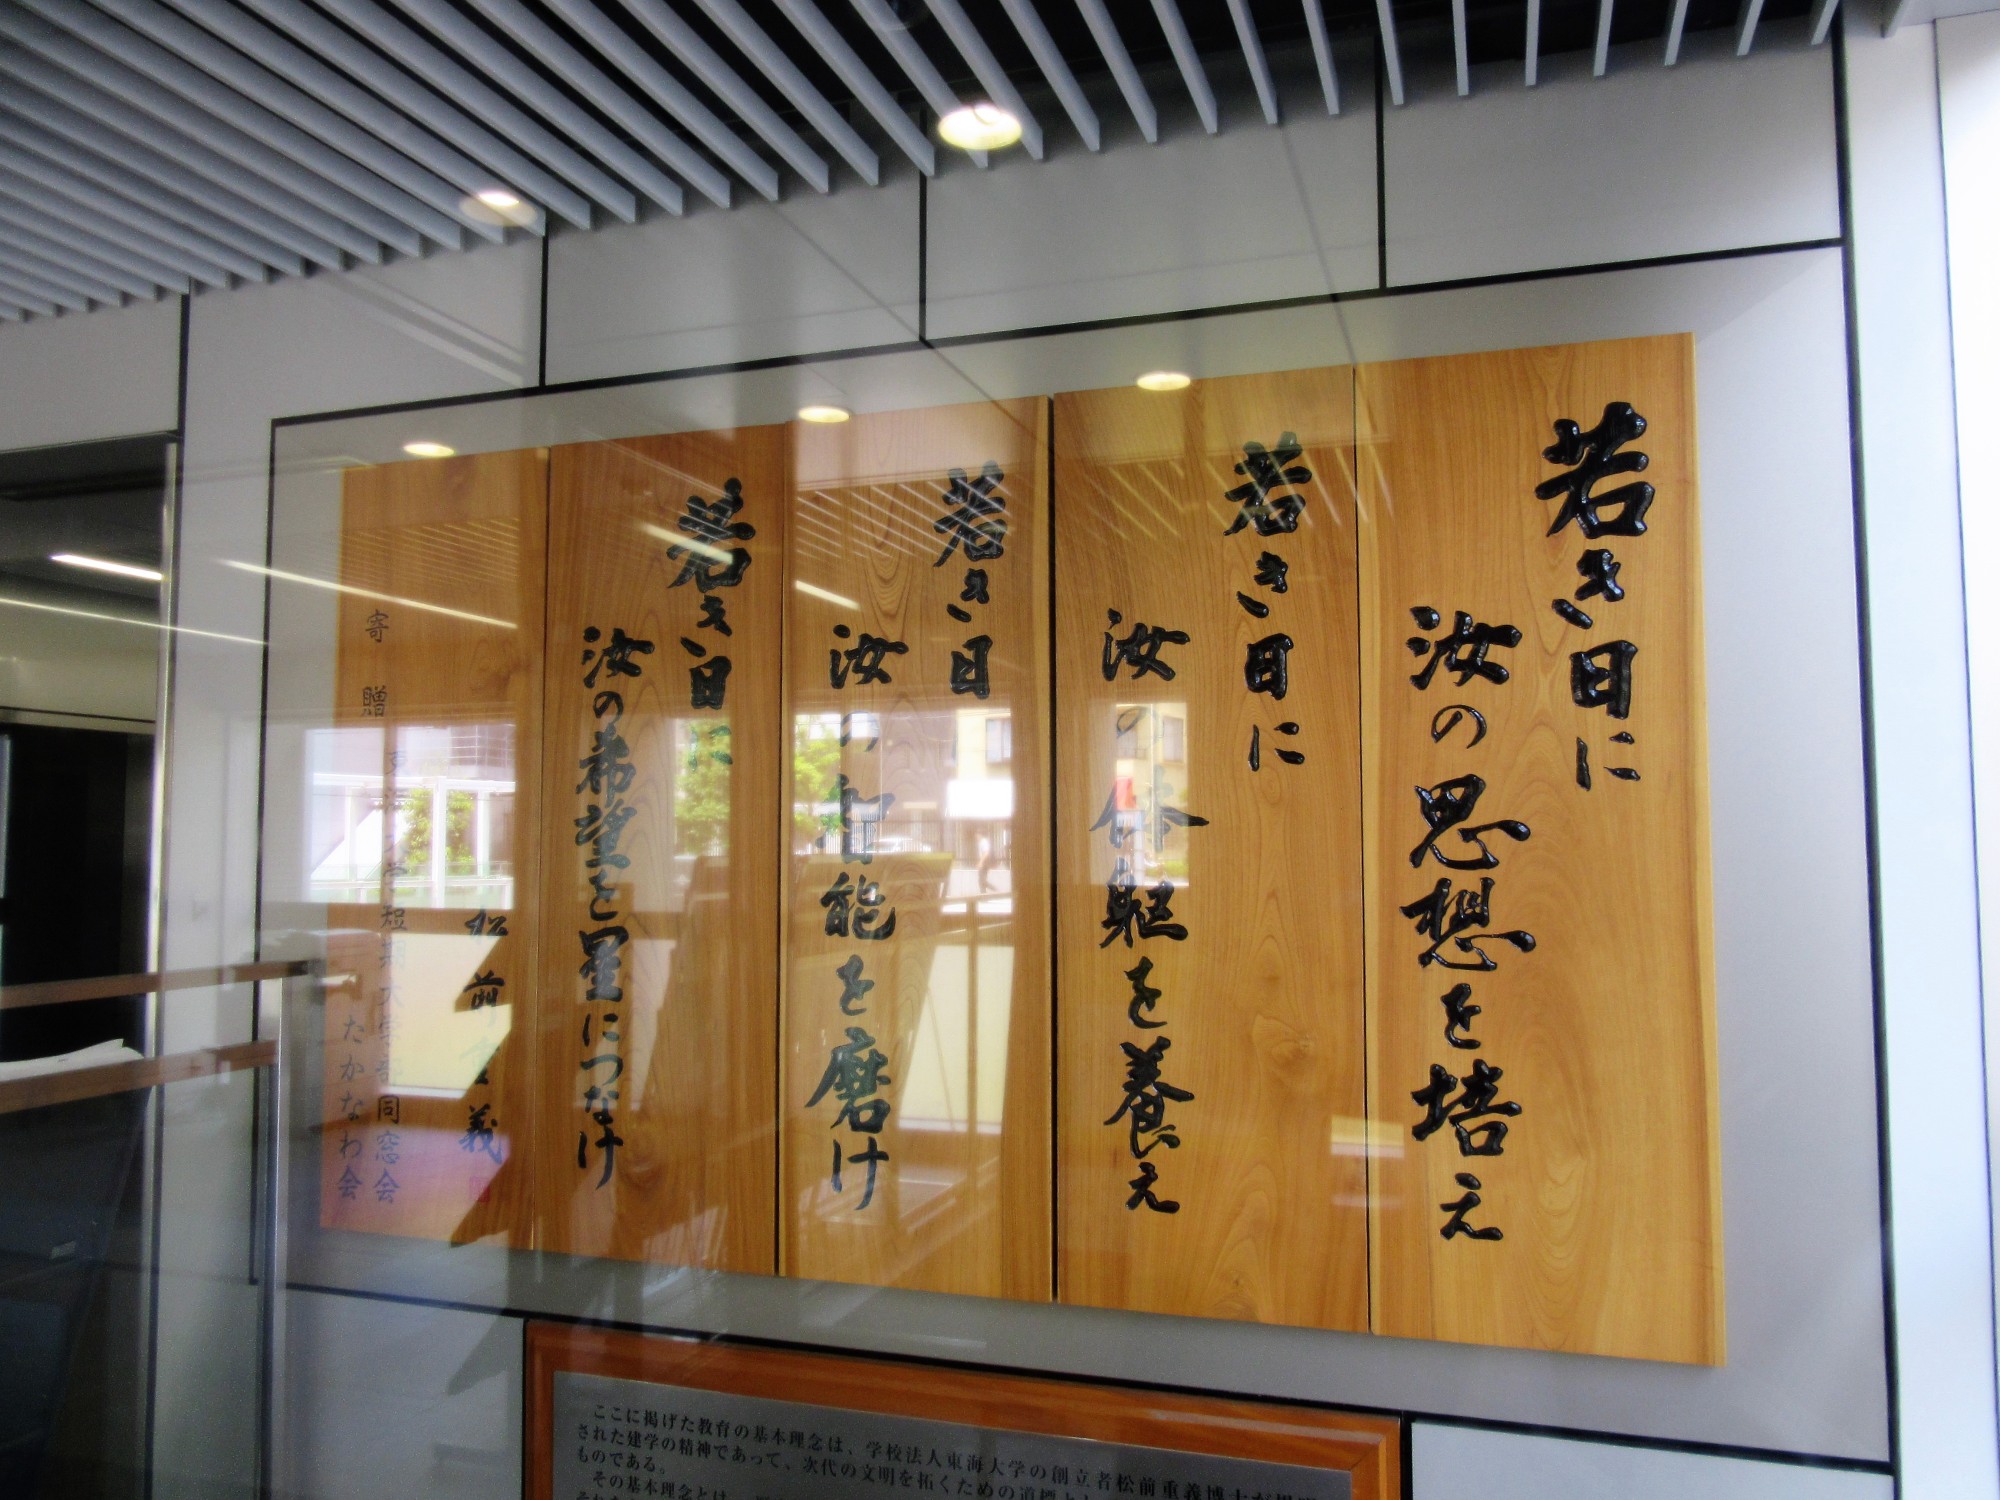 若き日に
汝の思想を培え
若き日に
汝の体躯を養え
若き日
汝の智能を磨け
若き日に
汝の希望を星につなけ
松前重義
寄贈 東海大学短期大学部同窓会
たかなわ会
ここに掲げた教育の基本理念は、学校法人東海大学の創立者松前重義博士が
された建学の精神であって、次代の文明を拓くための道標と
ものである。
その基本理念とは